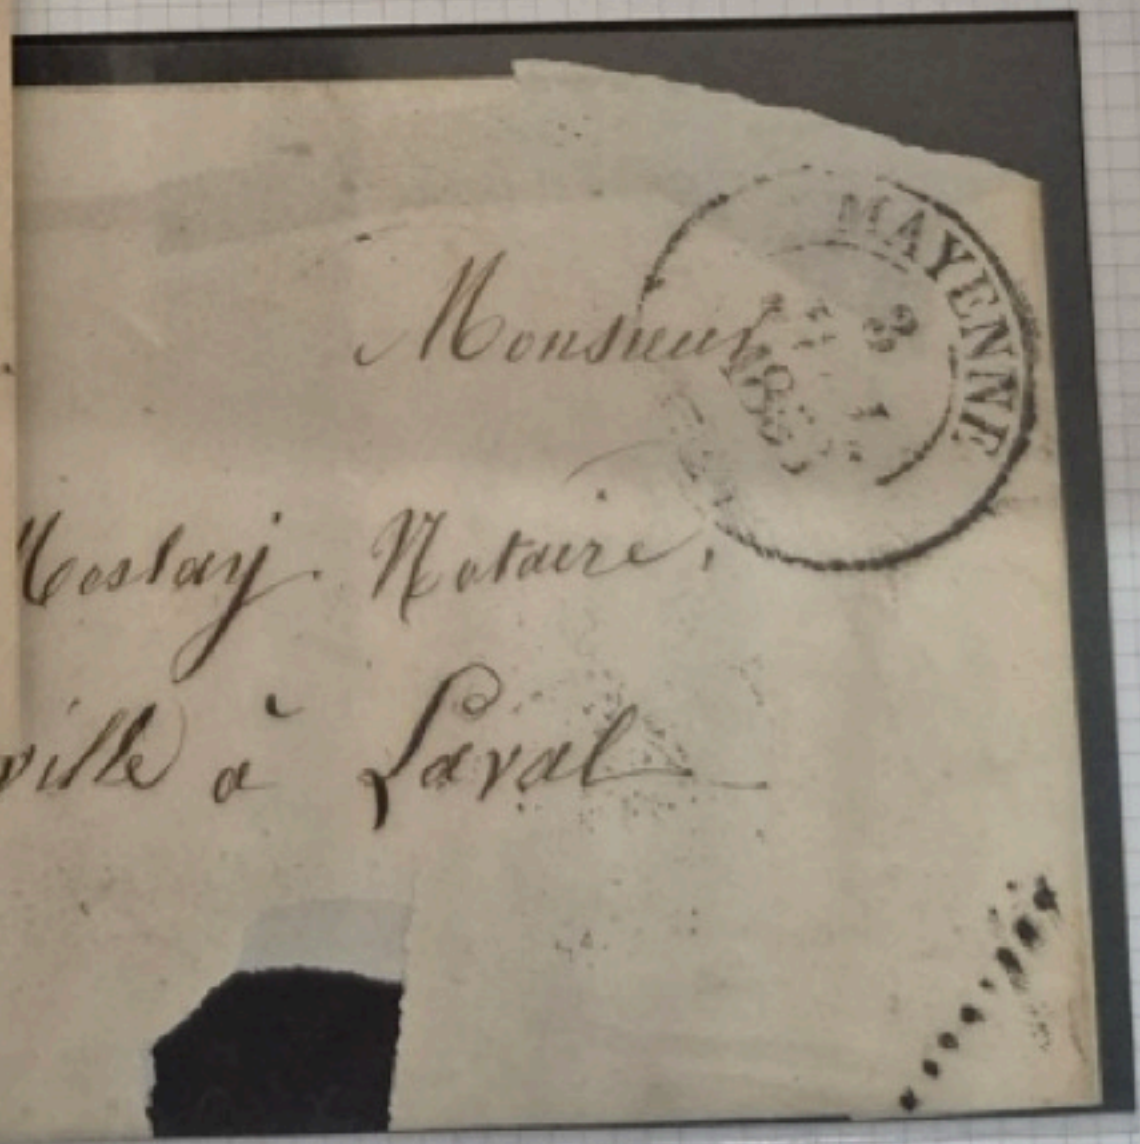 MAYENNE
Monsieur
Notaire,
ville à Laval